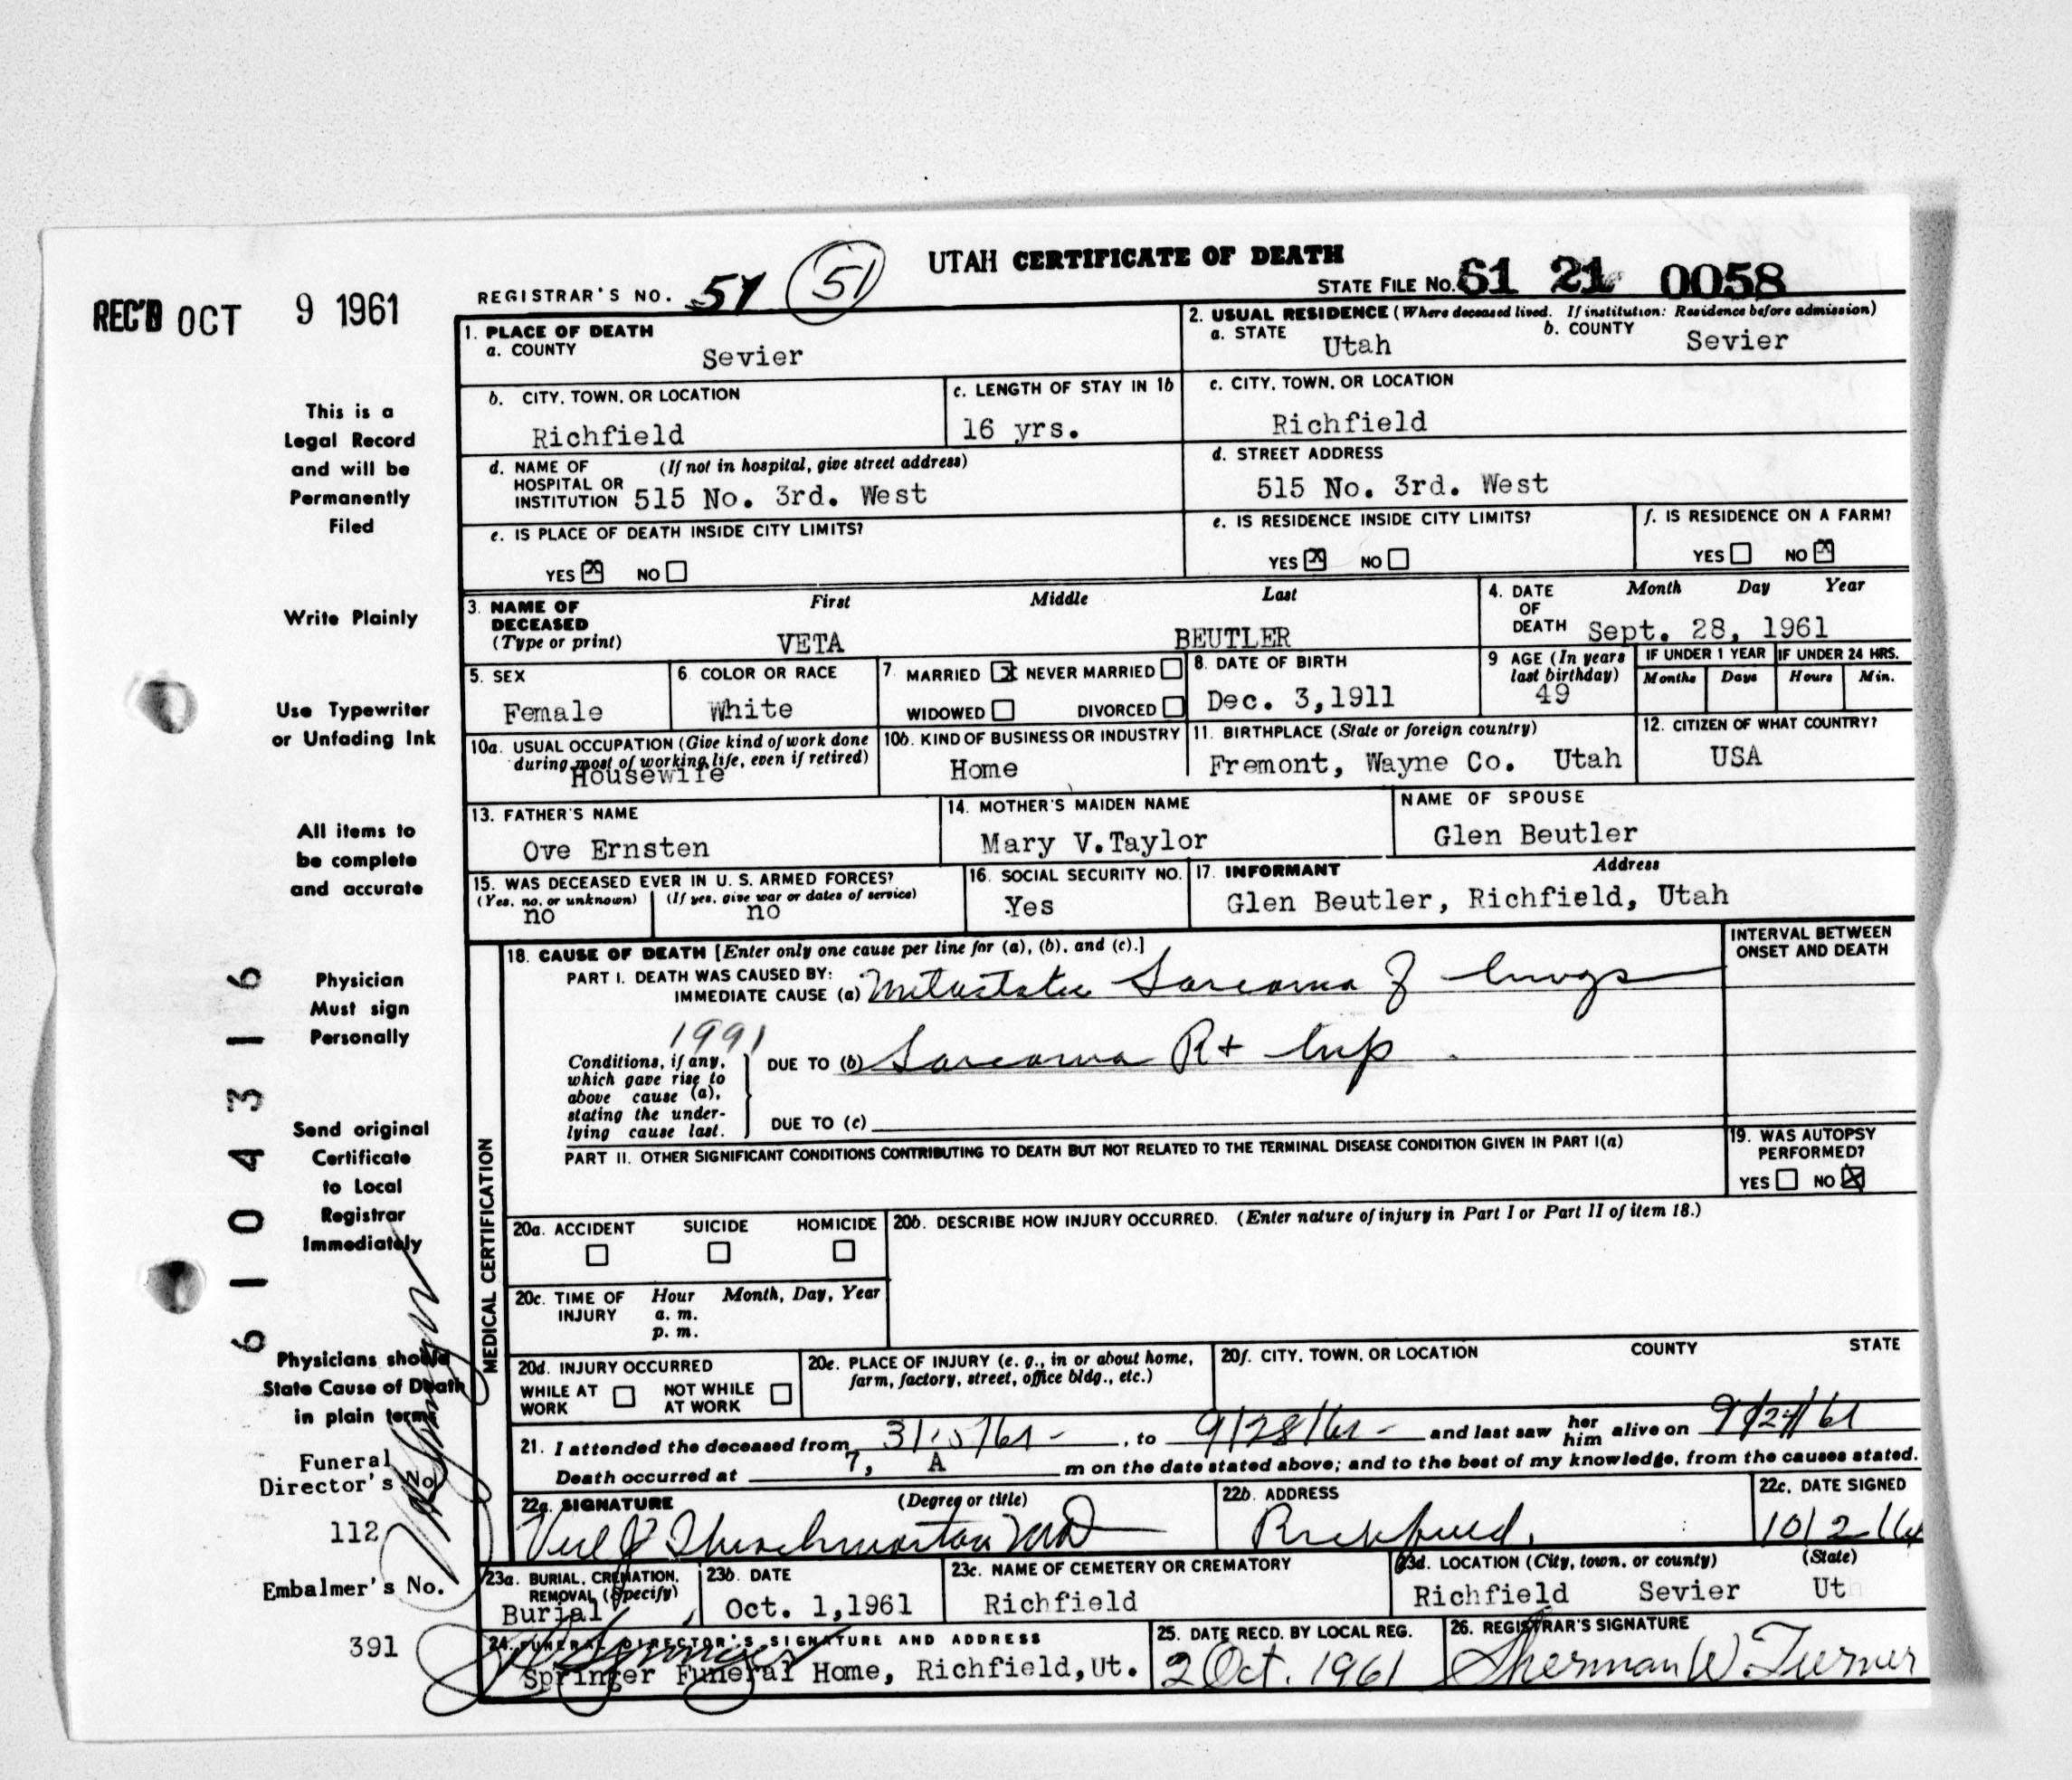 UTAH CERTIFICATE OF DEATH
REC'D OCT 9 1961
REGISTRAR'S NO. 51 (51)
STATE FILE No. 61 21 0058
1. PLACE OF DEATH
a. COUNTY
Sevier
2. USUAL RESIDENCE (Where deceased lived. If institution: Residence before admission)
a. STATE Utah b. COUNTY Sevier
b. CITY, TOWN, OR LOCATION
Richfield
c. LENGTH OF STAY IN 1b
16 yrs.
c. CITY, TOWN, OR LOCATION
Richfield
d. NAME OF HOSPITAL OR INSTITUTION (If not in hospital, give street address)
515 No. 3rd. West
d. STREET ADDRESS
515 No. 3rd. West
e. IS PLACE OF DEATH INSIDE CITY LIMITS?
YES X NO
e. IS RESIDENCE INSIDE CITY LIMITS?
YES X NO
f. IS RESIDENCE ON A FARM?
YES NO X
3. NAME OF DECEASED (Type or print)
First Middle Last
VETA BEUTLER
4. DATE OF DEATH Month Day Year
Sept. 28, 1961
5. SEX
Female
6. COLOR OR RACE
White
7. MARRIED X NEVER MARRIED
WIDOWED DIVORCED
8. DATE OF BIRTH
Dec. 3,1911
9 AGE (In years last birthday)
49
IF UNDER 1 YEAR
Months Days
IF UNDER 24 HRS.
Hours Min.
10a. USUAL OCCUPATION (Give kind of work done during most of working life, even if retired)
Housewife
10b. KIND OF BUSINESS OR INDUSTRY
Home
11. BIRTHPLACE (State or foreign country)
Fremont, Wayne Co. Utah
12. CITIZEN OF WHAT COUNTRY?
USA
13. FATHER'S NAME
Ove Ernsten
14. MOTHER'S MAIDEN NAME
Mary V.Taylor
NAME OF SPOUSE
Glen Beutler
15. WAS DECEASED EVER IN U. S. ARMED FORCES?
(Yes, no, or unknown) (If yes, give war or dates of service)
no no
16. SOCIAL SECURITY NO.
Yes
17. INFORMANT Address
Glen Beutler, Richfield, Utah
MEDICAL CERTIFICATION
18. CAUSE OF DEATH [Enter only one cause per line for (a), (b), and (c).]
INTERVAL BETWEEN ONSET AND DEATH
PART I. DEATH WAS CAUSED BY:
IMMEDIATE CAUSE (a) Metastatic Sarcoma of lungs
1991
Conditions, if any, which gave rise to above cause (a), stating the underlying cause last.
DUE TO (b) Sarcoma Rt hip
DUE TO (c)
PART II. OTHER SIGNIFICANT CONDITIONS CONTRIBUTING TO DEATH BUT NOT RELATED TO THE TERMINAL DISEASE CONDITION GIVEN IN PART I(a)
19. WAS AUTOPSY PERFORMED?
YES NO X
20a. ACCIDENT SUICIDE HOMICIDE
20b. DESCRIBE HOW INJURY OCCURRED. (Enter nature of injury in Part I or Part II of item 18.)
20c. TIME OF INJURY Hour Month, Day, Year
a. m.
p. m.
20d. INJURY OCCURRED
WHILE AT WORK NOT WHILE AT WORK
20e. PLACE OF INJURY (e. g., in or about home, farm, factory, street, office bldg., etc.)
20f. CITY, TOWN, OR LOCATION COUNTY STATE
21. I attended the deceased from , to 9/28/61 - and last saw her him alive on
Death occurred at 7, A m on the date stated above; and to the best of my knowledge, from the causes stated.
22a. SIGNATURE (Degree or title)
MD
22b. ADDRESS
Richfield,
22c. DATE SIGNED
23a. BURIAL, CREMATION, REMOVAL (Specify)
Burial
23b. DATE
Oct. 1,1961
23c. NAME OF CEMETERY OR CREMATORY
Richfield
23d. LOCATION (City, town, or county) (State)
Richfield Sevier Ut
24. FUNERAL DIRECTOR'S SIGNATURE AND ADDRESS
Springer Funeral Home, Richfield,Ut.
25. DATE RECD. BY LOCAL REG.
2 Oct. 1961
26. REGISTRAR'S SIGNATURE
Sherman W. Turner
This is a
Legal Record
and will be
Permanently
Filed
Write Plainly
Use Typewriter
or Unfading Ink
All items to
be complete
and accurate
Physician
Must sign
Personally
Send original
Certificate
to Local
Registrar
Immediately
Physicians should
State Cause of Death
in plain terms
Funeral
Director's No.
112
Embalmer's No.
391
6104316